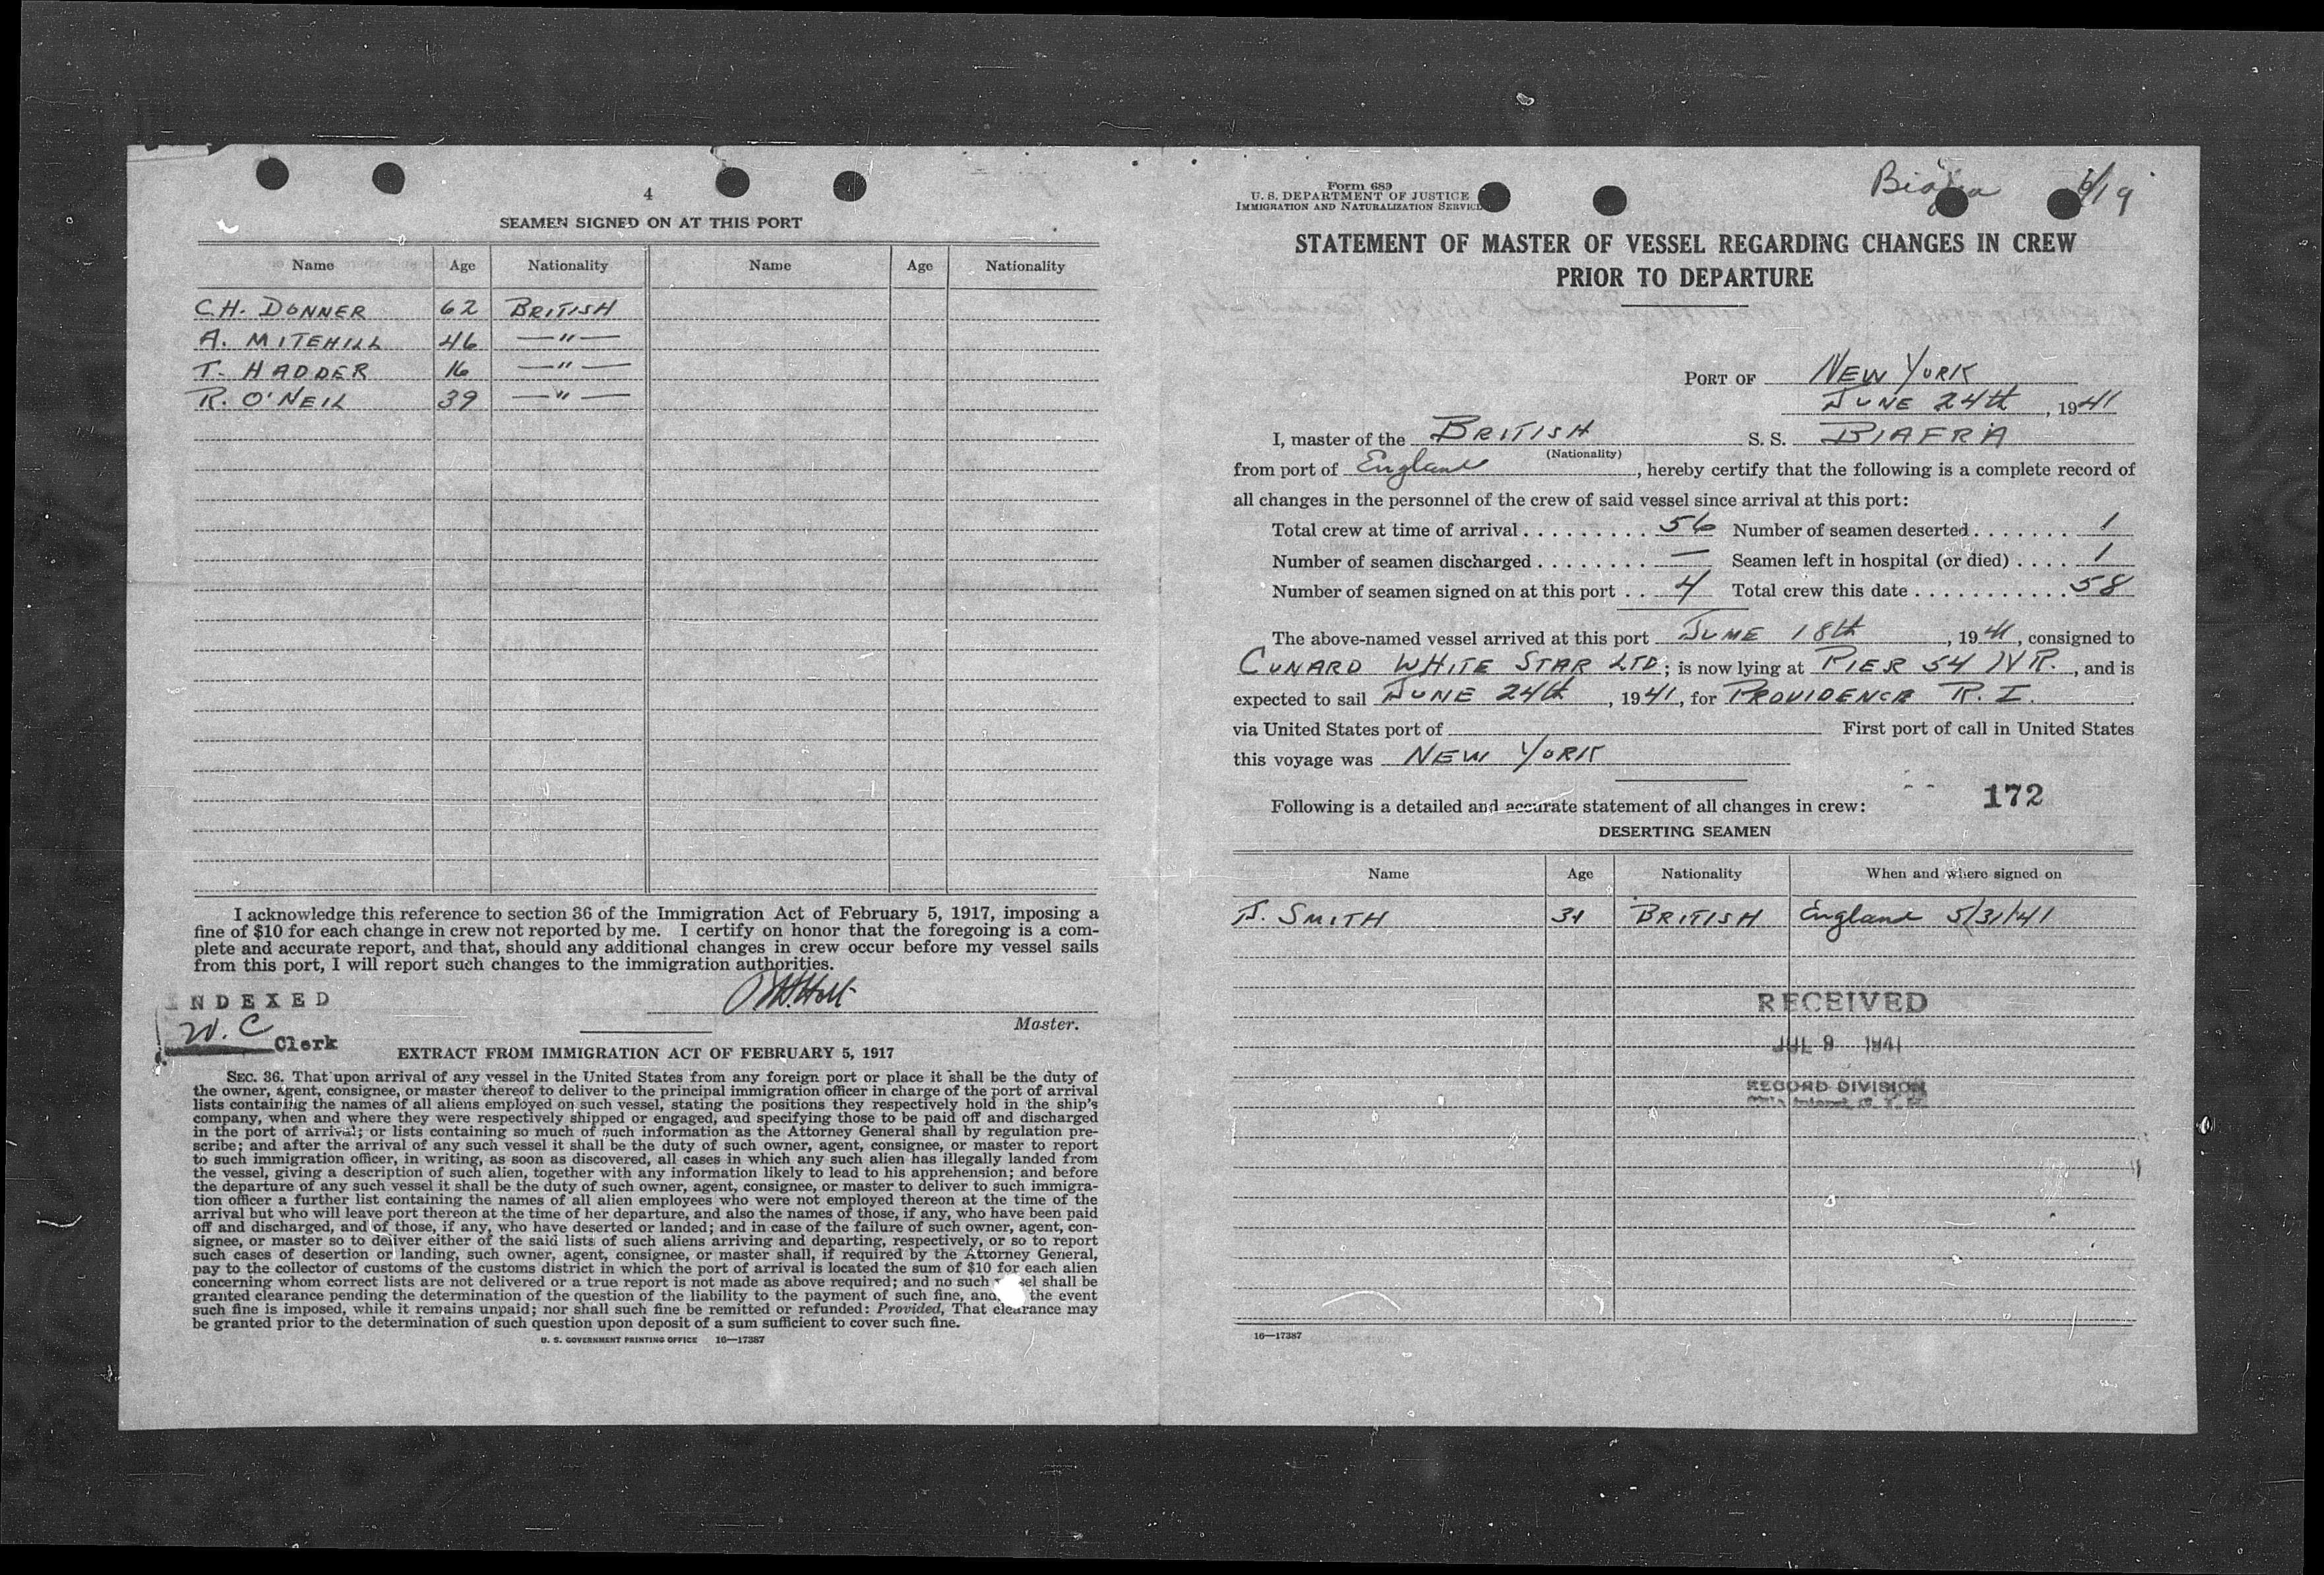 4
SEAMEN SIGNED ON AT THIS PORT
Name Age Nationality Name Age Nationality
C.H. DONNER 62 BRITISH
A. MITEHILL 46 —"—
T. HADDER 16 —"—
R. O'NEIL 39 —"—
I acknowledge this reference to section 36 of the Immigration Act of February 5, 1917, imposing a
fine of $10 for each change in crew not reported by me. I certify on honor that the foregoing is a com-
plete and accurate report, and that, should any additional changes in crew occur before my vessel sails
from this port, I will report such changes to the immigration authorities.
INDEXED
W. C Clerk
Master.
EXTRACT FROM IMMIGRATION ACT OF FEBRUARY 5, 1917
SEC. 36. That upon arrival of any vessel in the United States from any foreign port or place it shall be the duty of
the owner, agent, consignee, or master thereof to deliver to the principal immigration officer in charge of the port of arrival
lists containing the names of all aliens employed on such vessel, stating the positions they respectively hold in the ship's
company, when and where they were respectively shipped or engaged, and specifying those to be paid off and discharged
in the port of arrival; or lists containing so much of such information as the Attorney General shall by regulation pre-
scribe; and after the arrival of any such vessel it shall be the duty of such owner, agent, consignee, or master to report
to such immigration officer, in writing, as soon as discovered, all cases in which any such alien has illegally landed from
the vessel, giving a description of such alien, together with any information likely to lead to his apprehension; and before
the departure of any such vessel it shall be the duty of such owner, agent, consignee, or master to deliver to such immigra-
tion officer a further list containing the names of all alien employees who were not employed thereon at the time of the
arrival but who will leave port thereon at the time of her departure, and also the names of those, if any, who have been paid
off and discharged, and of those, if any, who have deserted or landed; and in case of the failure of such owner, agent, con-
signee, or master so to deliver either of the said lists of such aliens arriving and departing, respectively, or so to report
such cases of desertion or landing, such owner, agent, consignee, or master shall, if required by the Attorney General,
pay to the collector of customs of the customs district in which the port of arrival is located the sum of $10 for each alien
concerning whom correct lists are not delivered or a true report is not made as above required; and no such vessel shall be
granted clearance pending the determination of the question of the liability to the payment of such fine, and the event
such fine is imposed, while it remains unpaid; nor shall such fine be remitted or refunded: Provided, That clearance may
be granted prior to the determination of such question upon deposit of a sum sufficient to cover such fine.
U. S. GOVERNMENT PRINTING OFFICE 16—17387
Form 689
U. S. DEPARTMENT OF JUSTICE
IMMIGRATION AND NATURALIZATION SERVICE
Biafra 6/19
STATEMENT OF MASTER OF VESSEL REGARDING CHANGES IN CREW
PRIOR TO DEPARTURE
PORT OF NEW YORK
JUNE 24th, 1941
I, master of the BRITISH S. S. BIAFRA
(Nationality)
from port of England, hereby certify that the following is a complete record of
all changes in the personnel of the crew of said vessel since arrival at this port:
Total crew at time of arrival 56 Number of seamen deserted 1
Number of seamen discharged — Seamen left in hospital (or died) 1
Number of seamen signed on at this port 4 Total crew this date 58
The above-named vessel arrived at this port JUNE 18th, 1941, consigned to
CUNARD WHITE STAR LTD; is now lying at PIER 54 N R., and is
expected to sail JUNE 24th, 1941, for PROVIDENCE R. I.
via United States port of First port of call in United States
this voyage was NEW YORK
172
Following is a detailed and accurate statement of all changes in crew:
DESERTING SEAMEN
Name Age Nationality When and where signed on
J. SMITH 31 BRITISH England 5/31/41
RECEIVED
JUL 9 1941
RECORD DIVISION
16—17387